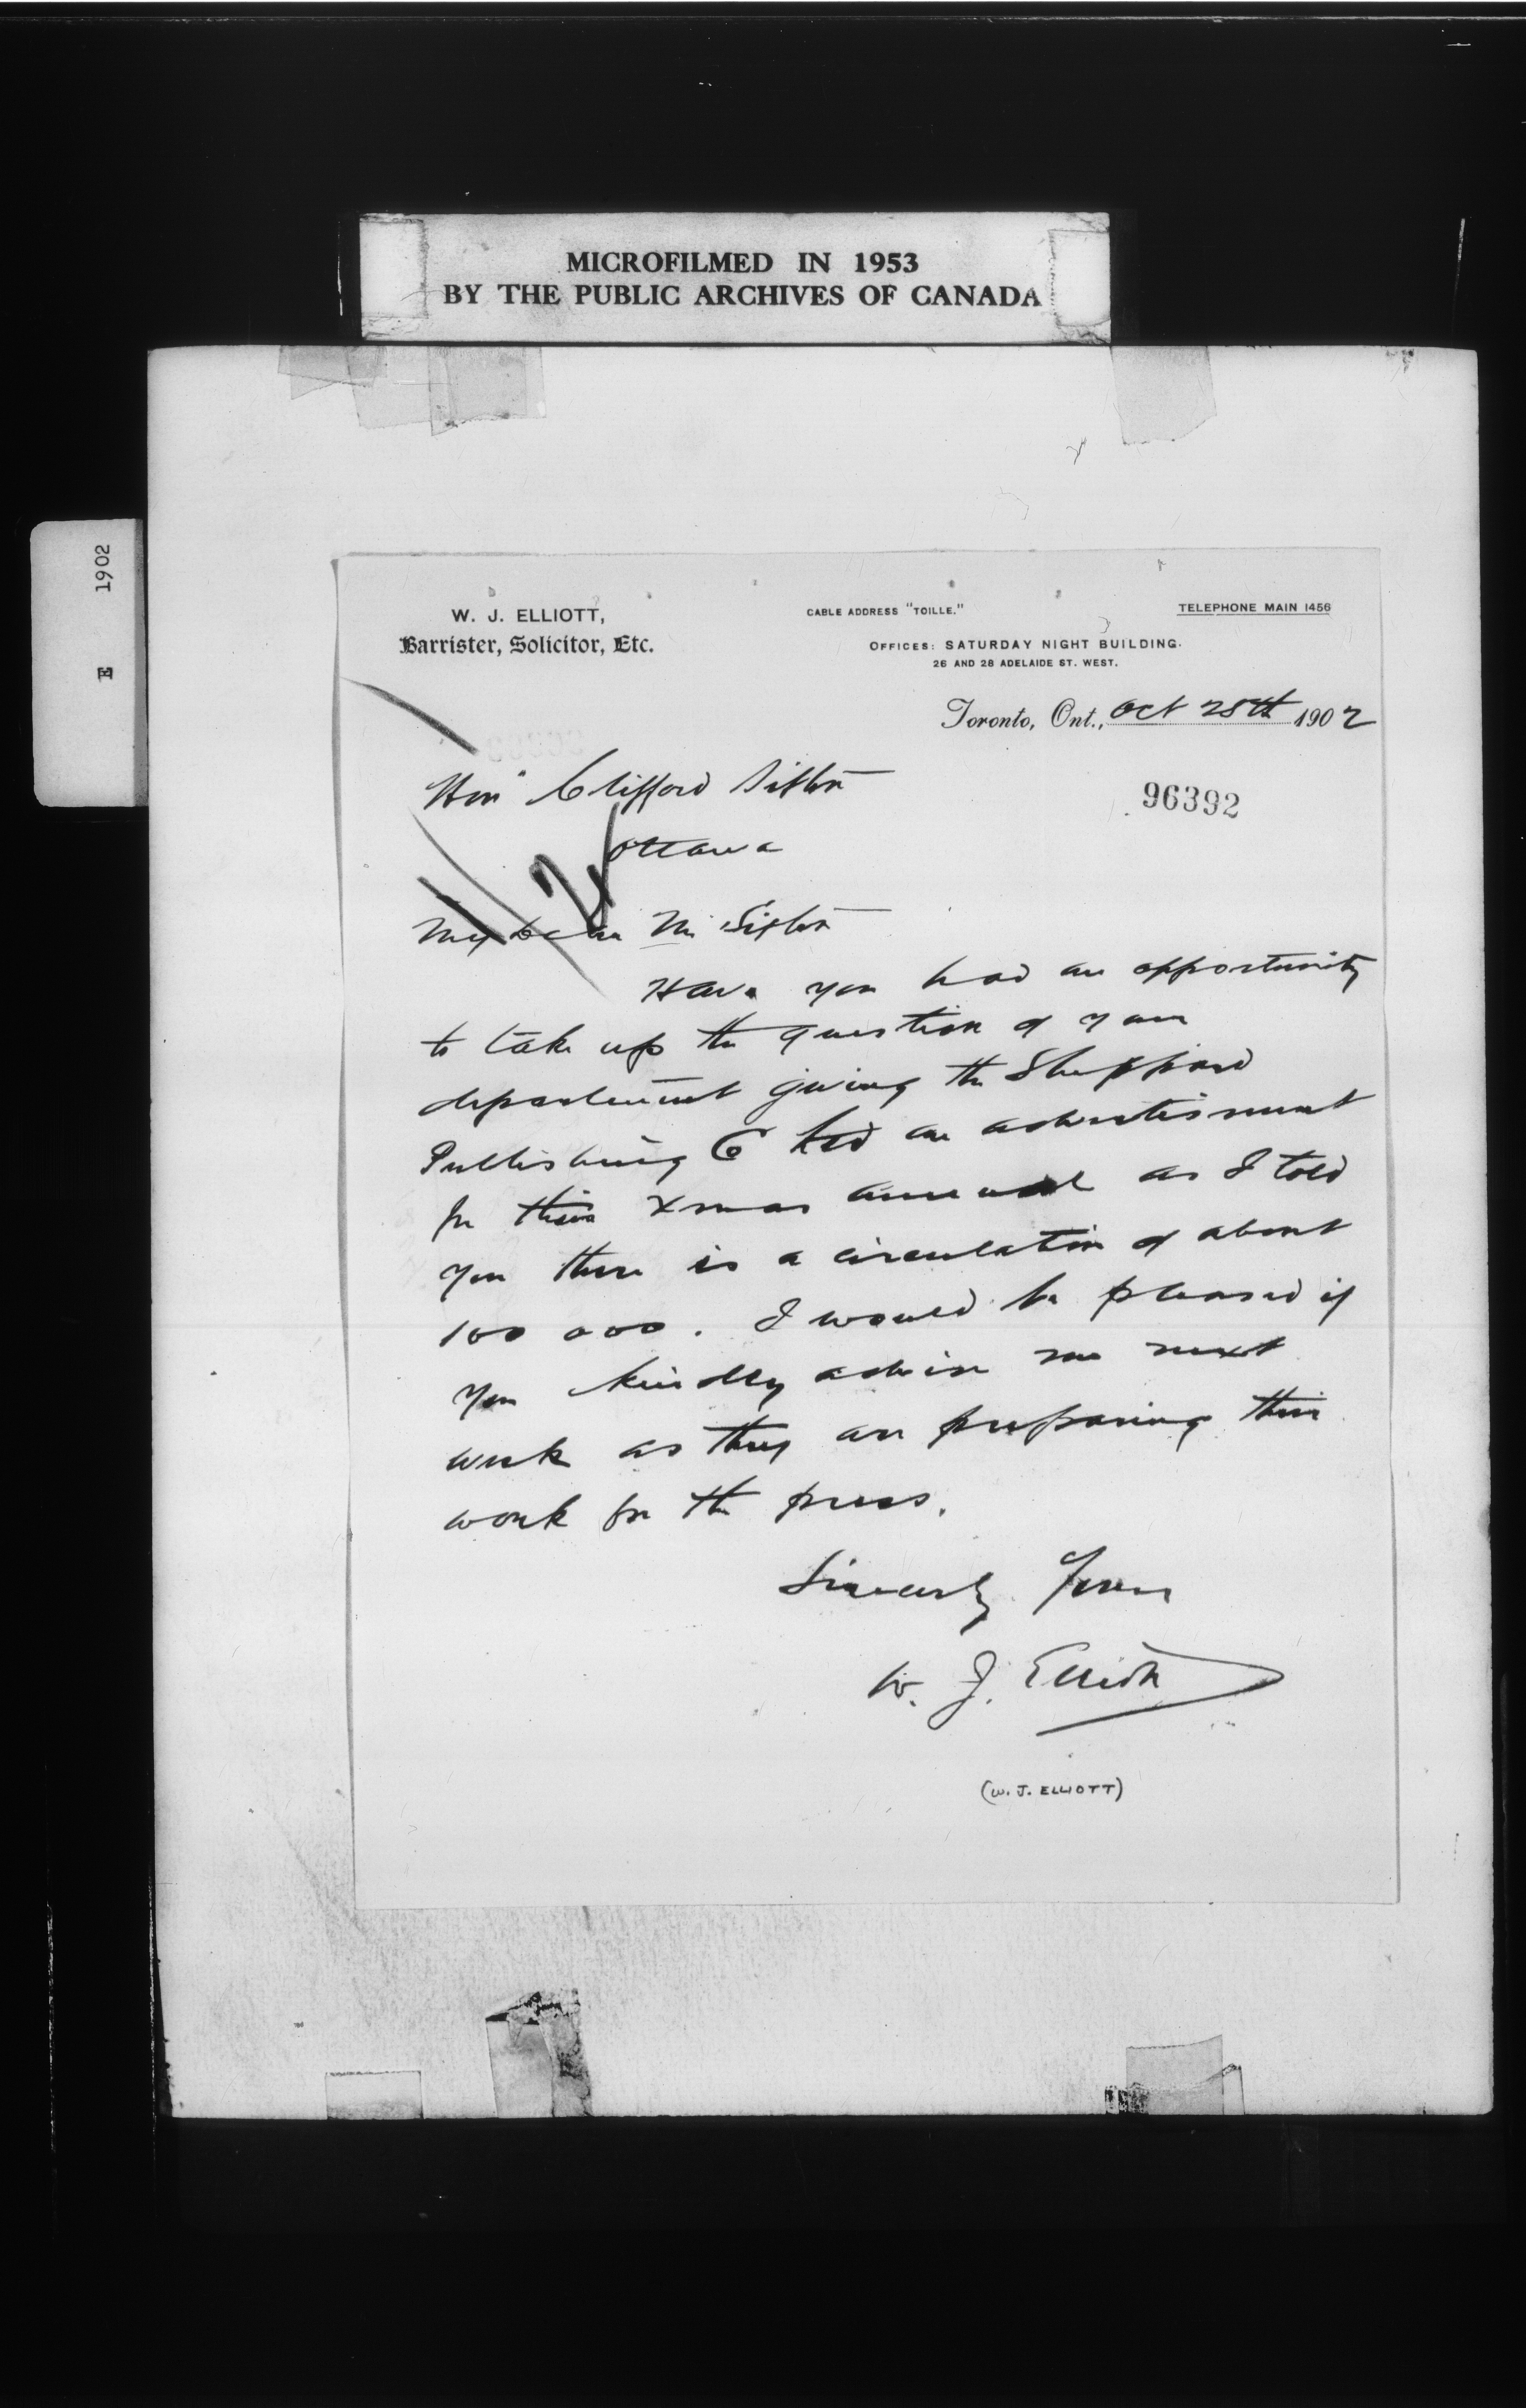 MICROFILMED IN 1953
BY THE PUBLIC ARCHIVES OF CANADA
E 1902
W. J. ELLIOTT,
Barrister, Solicitor, Etc.
CABLE ADDRESS "TOILLE."
TELEPHONE MAIN 1456
OFFICES: SATURDAY NIGHT BUILDING.
26 AND 28 ADELAIDE ST. WEST.
Toronto, Ont., Oct 28th 1902
96392
Hon Clifford Sifton
Ottawa
My Dear Mr Sifton
Have you had an opportunity
to take up the question of your
department giving the Sheppard
Publishing Co Ltd an advertisment
for their Xmas annual as I told
you there is a circulation of about
100 000. I would be pleased if
you kindly advise me next
week as they are preparing their
work for the press.
Sincerely Yours
W. J. Elliott
(W. J. ELLIOTT)